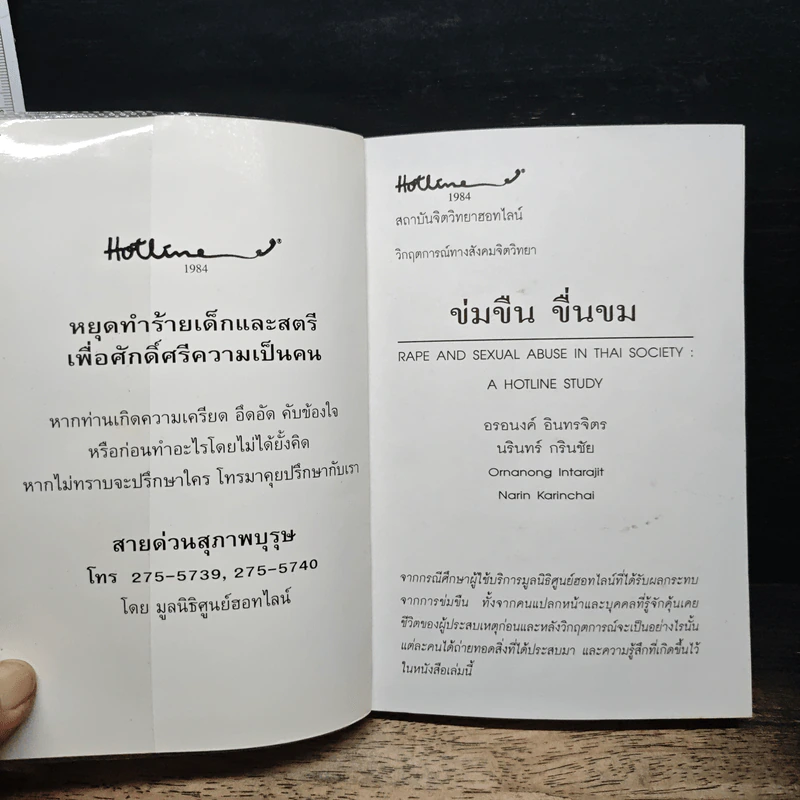 Hotline®
1984
หยุดทำร้ายเด็กและสตรี
เพื่อศักดิ์ศรีความเป็นคน
หากท่านเกิดความเครียด อึดอัด คับข้องใจ
หรือก่อนทำอะไรโดยไม่ได้ยั้งคิด
หากไม่ทราบจะปรึกษาใคร โทรมาคุยปรึกษากับเรา
สายด่วนสุภาพบุรุษ
โทร 275-5739, 275-5740
โดย มูลนิธิศูนย์ฮอทไลน์
Hotline®
1984
สถาบันจิตวิทยาฮอทไลน์
วิกฤตการณ์ทางสังคมจิตวิทยา
ข่มขืน ขื่นขม
RAPE AND SEXUAL ABUSE IN THAI SOCIETY :
A HOTLINE STUDY
อรอนงค์ อินทรจิตร
นรินทร์ กรินชัย
Ornanong Intarajit
Narin Karinchai
จากกรณีศึกษาผู้ใช้บริการมูลนิธิศูนย์ฮอทไลน์ที่ได้รับผลกระทบ
จากการข่มขืน ทั้งจากคนแปลกหน้าและบุคคลที่รู้จักคุ้นเคย
ชีวิตของผู้ประสบเหตุก่อนและหลังวิกฤตการณ์จะเป็นอย่างไรนั้น
แต่ละคนได้ถ่ายทอดสิ่งที่ได้ประสบมา และความรู้สึกที่เกิดขึ้นไว้
ในหนังสือเล่มนี้